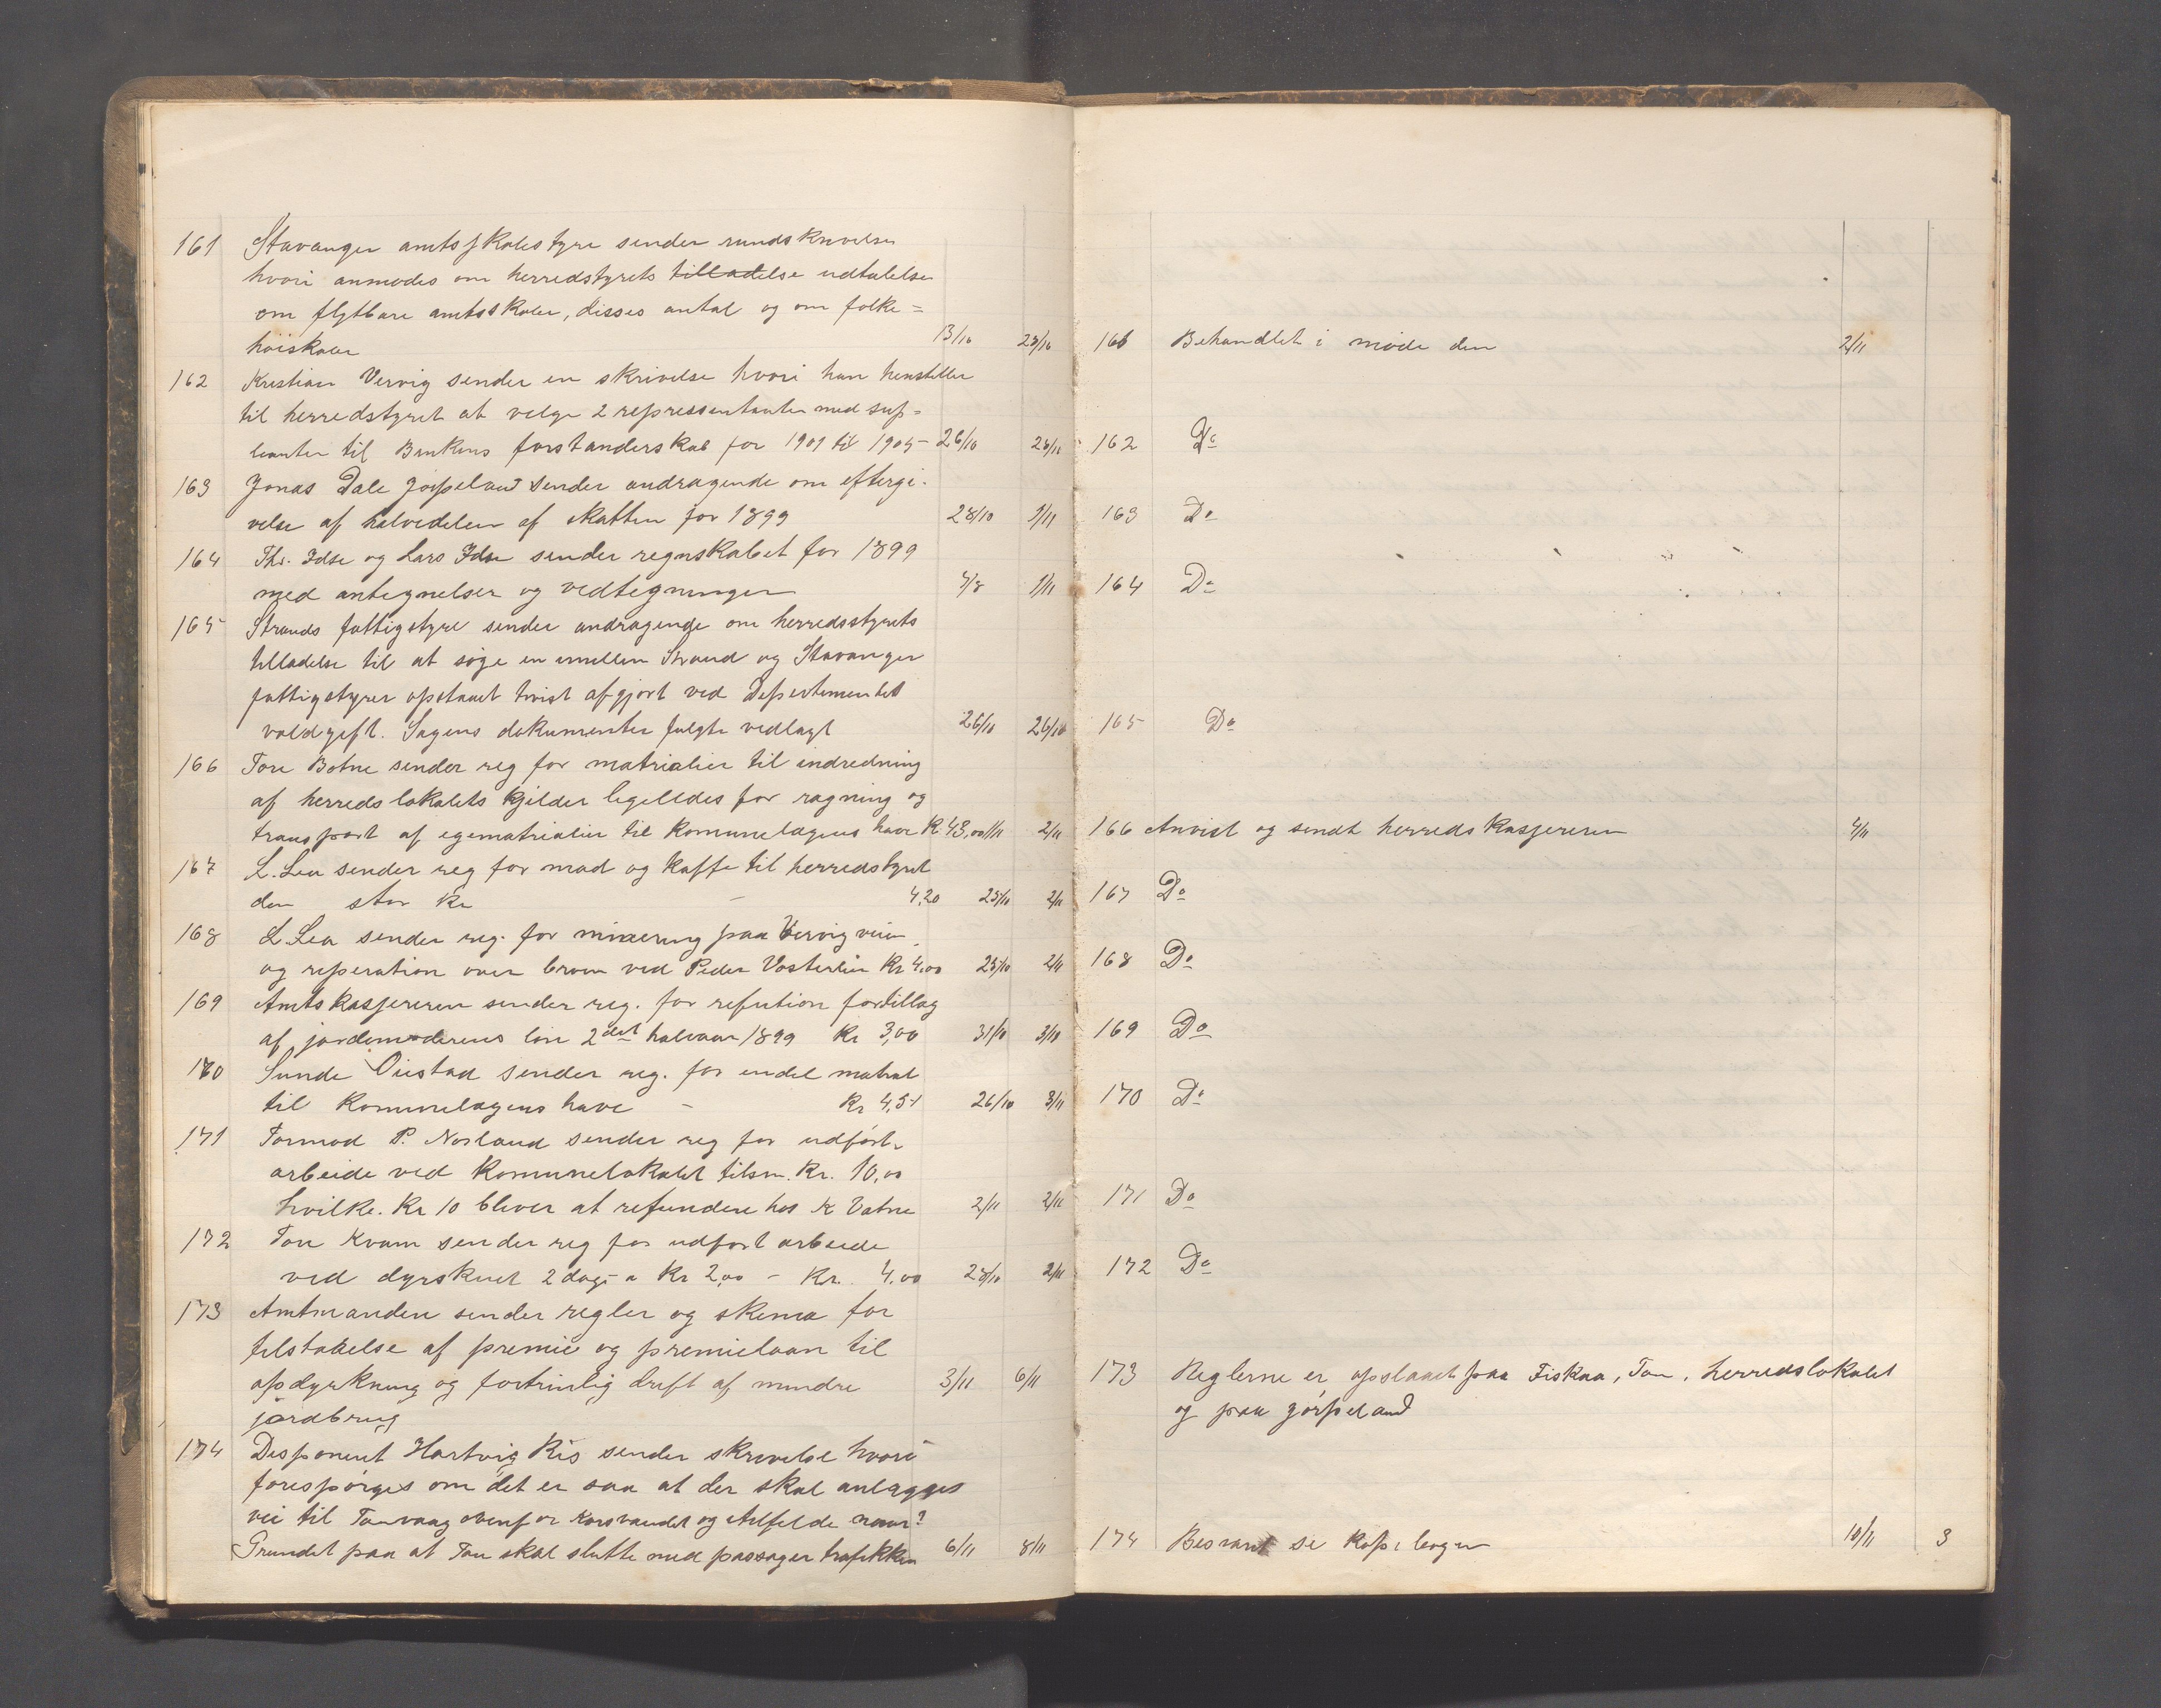 161 Stavanger amtsskolestyre sender rundskrivelse
hvori anmodes om herredstyrets tilladelse udtalelse
om flytbare amtsskoler, disses antal og om folke=
høiskoler 13/10 23/10
162 Kristian Vervig sender en skrivelse hvori han henstiller
til herredstyret at velge 2 repressentanter med sup=
leanter til Bankens forstanderskab for 1901 til 1905 26/10 26/10
163 Jonas Dale Jørpeland sender andragende om eftergi-
velse af halvedelen af skatten for 1899 28/10 1/11
164 Thr. Idse og Lars Idse sender regnskabet for 1899
med antegnelser og vedtegninger 3/8 1/11
165 Strands fattigstyre sender andragende om herredsstyrets
tilladelse til at søge en imellem Strand og Stavanger
fattigstyrer opstaaet tvist afgjort ved Departementet
voldgift. Sagens dokumenter fulgte vedlagt 26/10 26/10
166 Tore Botne sender reg for matrialier til indredning
af herredslokalets kjelder ligelledes for ragning og
transport af egematrialier til Komunelagens have Kr 43,00 1/11 2/11
167 L. Lea sender reg for mad og kaffe til herredstyret
den stor Kr - 4,20 23/10 2/11
168 L. Lea sender reg. for minering paa Vervigveien
og reperation over broen ved Peder Vosterlien Kr 4,00 23/10 2/11
169 Amtskassereren sender reg. for refution for tillæg
af jordemoderens løn 2det halvaar 1899 Kr 3,00 31/10 3/10
170 Sunde Øiestad sender reg. for endel matral
til Komunelagens have - Kr 4,51 26/10 3/11
171 Tormod P. Norland sender reg for udført
arbeide ved Komunelokalet tilsm. Kr. 10,00
hvilke. Kr 10 bliver at refundere hos K Vatne 2/11 2/11
172 Tore Kvam sender reg for udført arbeide
ved dyrskuet 2 dage a Kr 2,00 - Kr. 4,00 28/10 2/11
173 Amtmanden sender regler og skema for
tilstaaelse af premie og premielaan til
opdyrkning og fortrinlig drift af mindre 3/11 6/11
jordbrug
174 Disponent Hartvig Ris sender skrivelse hvori
forespørges om det er saa at der skal anlægges
vei til Tauvaag ovenfor Korsvandet og Aelfelde naar?
Grundet paa at Tau skal slutte med passager trafikken 6/11 8/11
161 Behandlet i møde den 2/11
162 Do
163 Do
164 Do
165 Do
166 Anvist og sendt herredskassereren 4/11
167 Do
168 Do
169 Do
170 Do
171 Do
172 Do
173 Reglerne er opslaaet paa Fiskaa, Tau, herredslokalet
og paa Jørpeland
174 Besvart se kopibogen 10/11 3